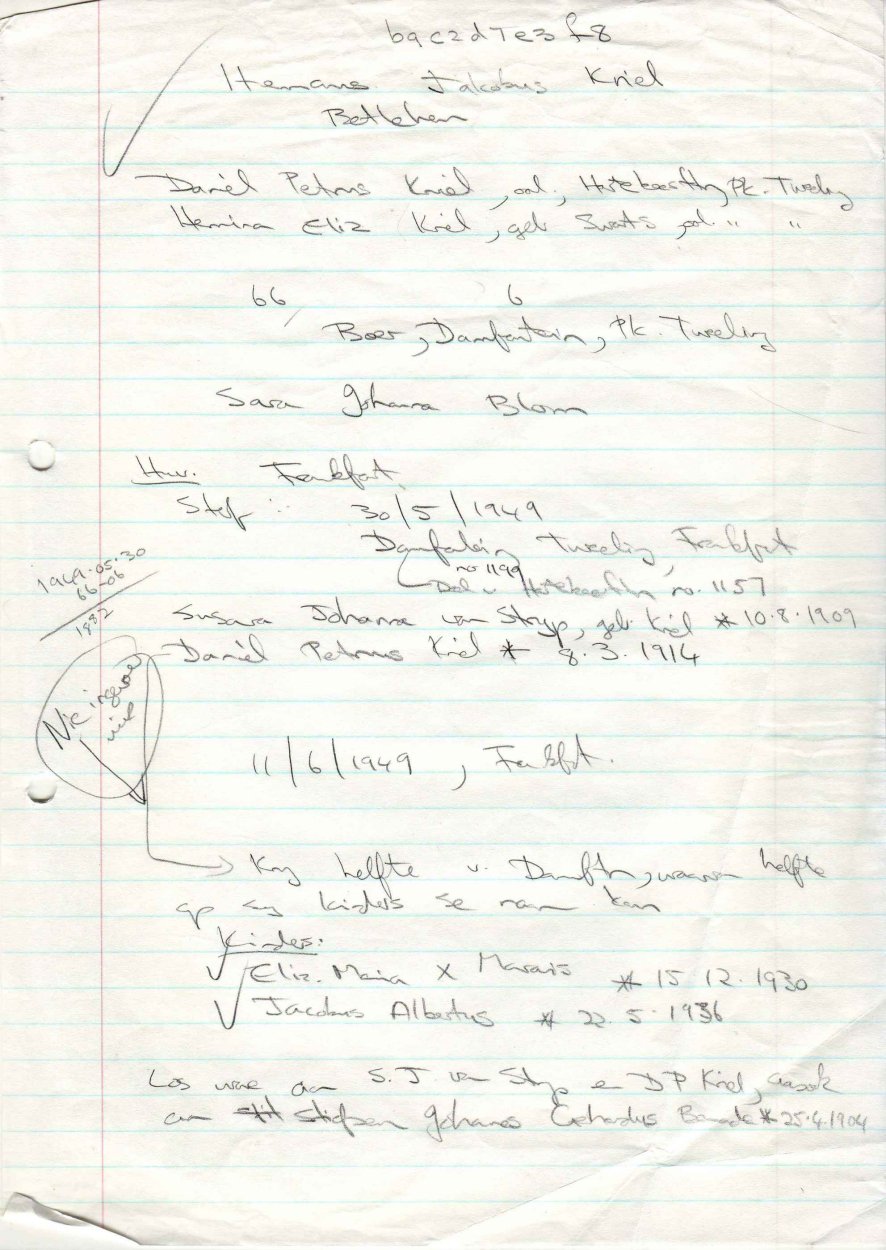 b9c2d7e3f8
Hermanus Jakobus Kriel
Betlehem
Daniël Petrus Kriel, ool., Hartebeesftn, Pk. Tweeling
Hermina Eliz Kriel, geb. Swarts, ool. " "
66 6
Boer, Damfontein, Pk. Tweeling
Sara Johanna Blom
Huw. Frankfort
Sterf : 30/5/1949
Damfontein Tweeling, Frankfort
no 1199
Deel v. Hartebeesftn no. 1157
1949-05-30
66-06
1882
Susara Johanna van Stryp, geb. Kriel * 10.8.1909
Daniël Petrus Kriel * 8.3.1914
Nie ingevoer nie
11/6/1949, Frankfort.
Kry helfte v. Damftn, waarvan helfte
op sy kinders se naam kom
Kinders:
Eliz. Maria x Marais * 15.12.1930
Jacobus Albertus * 22.5.1936
Los vir aan S.J. van Stryp en DP Kriel, asook
aan stiefseun Johannes Gerhardus * 25.4.1904